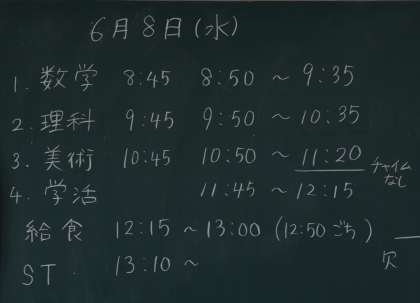 6月8日(水)
1. 数学 8:45 8:50 〜 9:35
2. 理科 9:45 9:50 〜 10:35
3. 美術 10:45 10:50 〜 11:20 チャイムなし
4. 学活 11:45 〜 12:15
給食 12:15 〜 13:00 (12:50 ごち)
ST 13:10 〜
欠